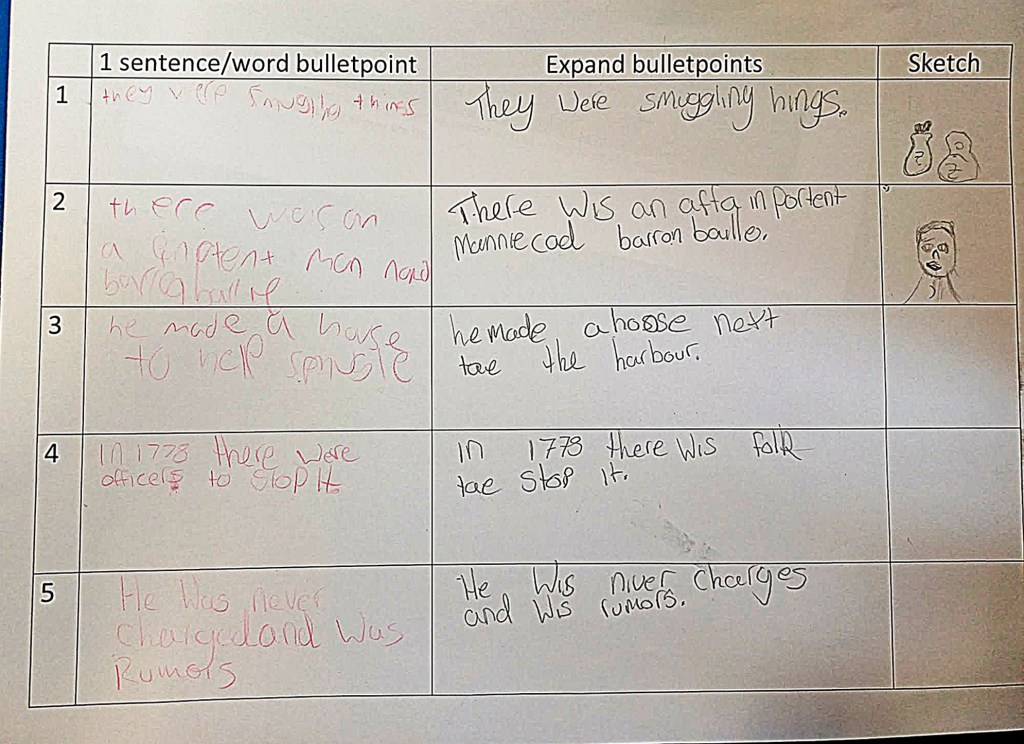 1 sentence/word bulletpoint
Expand bulletpoints
Sketch
1
they were smugling things
They were smuggling hings.
2
there was an
a inptent man namd
There wis an afta inportent
Mannie cad barron baillo.
3
he made a house
to help
he made a hoose next
tae the harbour.
4
In 1778 there were
officers to stop it.
In 1778 there wis folk
tae stop it.
5
He was never
charged and was
Rumors
He wis niver charges
and wis rumors.